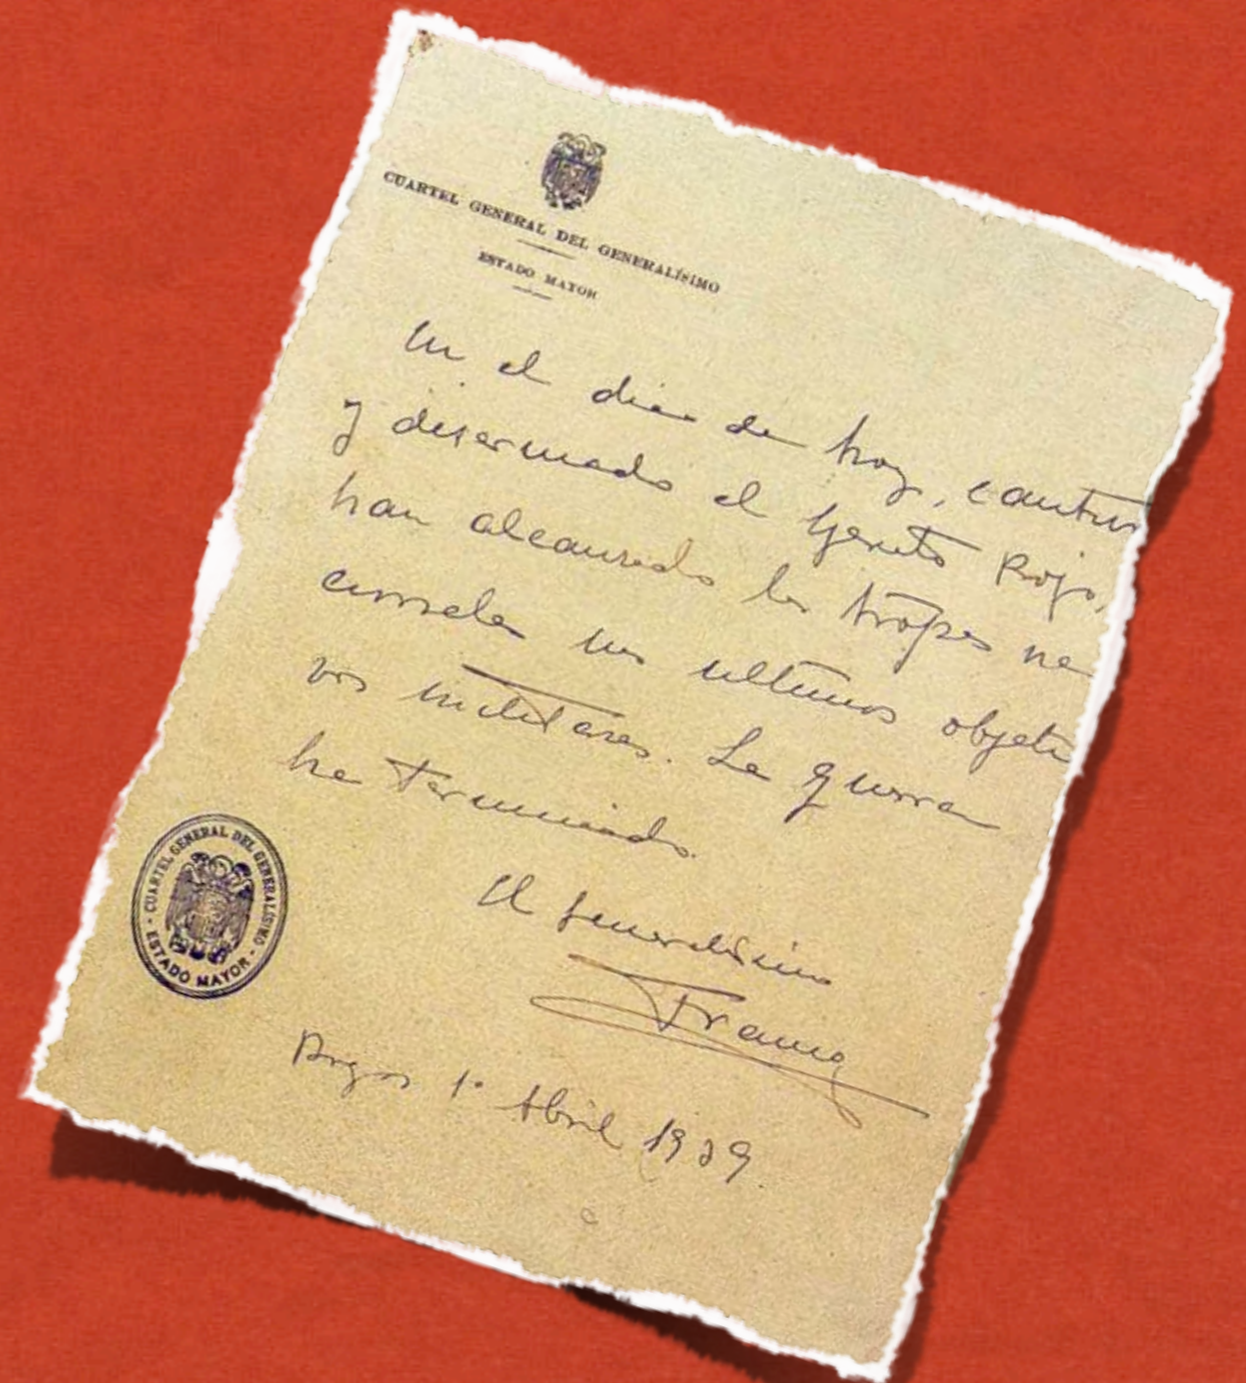 CUARTEL GENERAL DEL GENERALÍSIMO
ESTADO MAYOR
En el dia de hoy, cautivo
y desarmado el Ejercito Rojo,
han alcanzado las tropas na
cionales sus ultimos objeti
vos militares. La guerra
ha terminado.
El Generalisimo
Franco
Burgos 1º Abril 1939.
CUARTEL GENERAL DEL GENERALÍSIMO
· ESTADO MAYOR ·